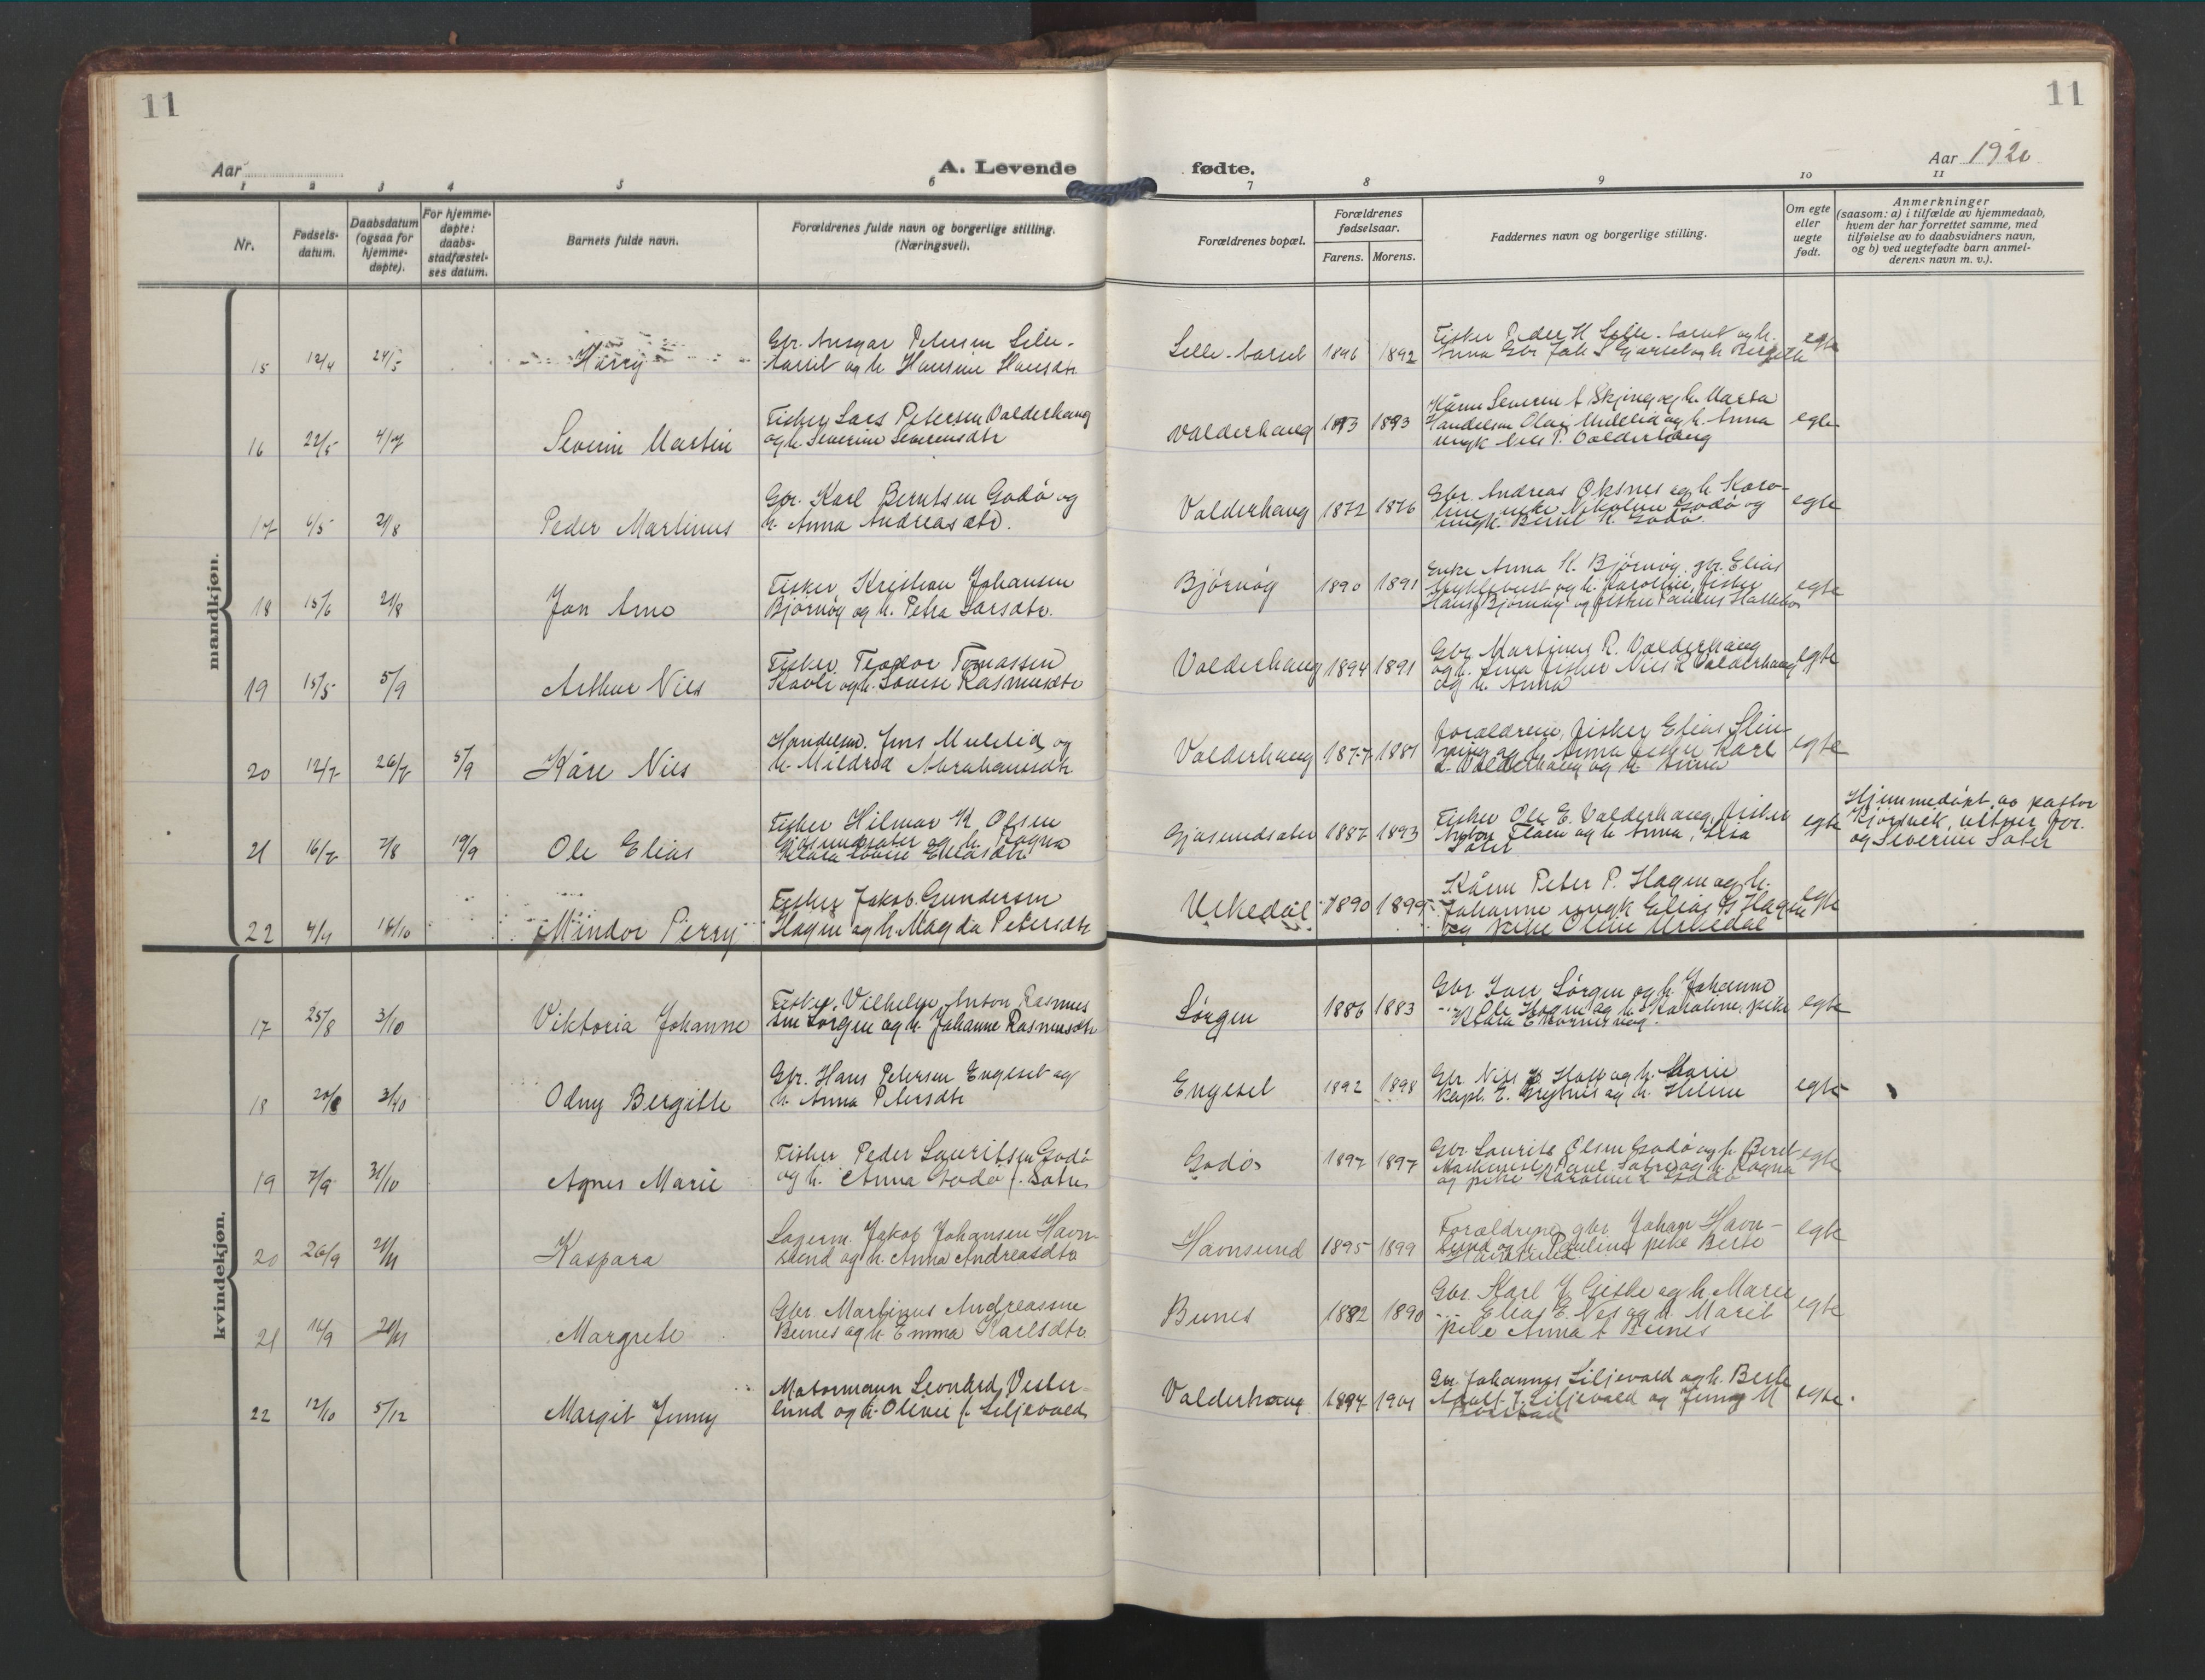 11
11
Aar
A. Levende
fødte.
Aar 1920
1 2 3 4 5 6 7 8 9 10 11
Nr.
Fødsels-
datum.
Daabsdatum
(ogsaa for
hjemme-
døpte).
For hjemme-
døpte:
daabs-
stadfæstel-
ses datum.
Barnets fulde navn.
Forældrenes fulde navn og borgerlige stilling.
(Næringsvei).
Forældrenes bopæl.
Forældrenes
fødselsaar.
Farens. Morens.
Faddernes navn og borgerlige stilling.
Om egte
eller
uegte
født.
Anmerkninger
(saasom: a) i tilfælde av hjemmedaab,
hvem der har forrettet samme, med
tilføielse av to daabsvidners navn,
og b) ved uegtefødte barn anmel-
derens navn m. v.).
mandkjøn.
15 12/4 24/5 Harry
Gbr. Ansgar Petersen Lille-
og h. Hansine Hansdtr
1892
egte
16 22/5 4/7 Severin Martin
Fisker Lars Petersen Valderhaug
og h. Severine Severinsdtr
Valderhaug 1893 1893
og h. Marta
og h. Anna
ungk Nils P. Valderhaug
egte
17 6/5 21/8 Peder Martinus
Gbr. Karl Berntsen Godø og
h. Anna Andreasdtr.
Valderhaug 1872 1876
Gbr. Andreas Oksnes og h. Karo-
line, Nikoline Godø og
ungk. Bernt K. Godø.
egte
18 15/6 21/8 Jon Arne
Fisker Kristian Johansen
Bjørnøy og h. Petra Larsdtr.
Bjørnøy 1890 1891
Enke Anna K. Bjørnøy, gbr. Elias
og h. Karoline, fisker
Hans Bjørnøy og fisker
egte
19 15/5 5/9 Arthur Nils
Fisker Teodor Tomassen
og h. Lovise Rasmusdtr
Valderhaug 1894 1891
Gbr. Martinus R. Valderhaug
og h. Lina fisker Nils R Valderhaug
og h. Anna
egte
20 12/7 26/7 5/9 Kåre Nils
Handelsm. Jens Mulelid og
h. Mildred Abrahamsdtr
Valderhaug 1877 1881
Forældrene, fisker Elias
og h. Anna fisker Karl
L. Valderhaug og h. Anna
egte
21 16/7 7/8 19/9 Ole Elias
Fisker Hilmar K. Olsen
og h. Ragna
Klara Lovise Eliasdtr
Gjøsundsæter 1887 1893
Fisker Ole E. Valderhaug, fisker
og h. Anna,
Sæter
egte
Hjemmedøpt av pastor
og Severine Sæter
22 4/9 16/10 Mindor Perry
Fisker Jakob Gundersen
Hagen og h. Magda Petersdtr
Urkedal 1890 1899
Peter P. Hagen og h.
Johanne ungk Elias G Hagen
og pike Oline Urkedal
egte
kvindekjøn.
17 25/8 3/10 Viktoria Johanne
Fisker Vilhelm Anton Rasmus
sen Sørgen og h. Johanne Rasmusdtr
Sørgen 1886 1883
Gbr Sørgen og h. Johanne
og h. Karoline, pike
egte
18 20/8 3/10 Odny Bergitte
Gbr. Hans Petersen Engeset og
h. Anna Petersdtr
Engeset 1892 1898
Gbr. Nils og h. Marie
Kapt. E. Grytnes og h. Helene
egte
19 7/9 31/10 Agnes Marie
Fisker Peder Lauritsen Godø
og h. Anna Godø f.
Godø 1897 1897
Gbr. Laurits Olsen Godø og h. Beret
Paul og h. Ragna
og pike Karoline L Godø
egte
20 26/9 21/11 Kaspara
Lagerm. Jakob Johansen Havn-
sund og h. Anna Andreasdtr
Havnsund 1895 1899
Forældrene, gbr Johan Havn-
sund og h. Pauline, pike Berte
Havnsund
egte
21 16/9 21/11 Margrete
Gbr. Martinus Andreassen
Bunes og h. Emma Karlsdtr
Bunes 1882 1890
Gbr. Karl J. Giske og h. Marie
--- Elias E. Nes og h. Marit
pike Anna A Bunes
egte
22 12/10 5/12 Margit Jenny
Motormann Leonard Vester-
lund og h. Oline f. Liljevald
Valderhaug 1894 1901
Gbr. Johannes Liljevald og h. Berte
Adolf J. Liljevald og Jenny M
egte.